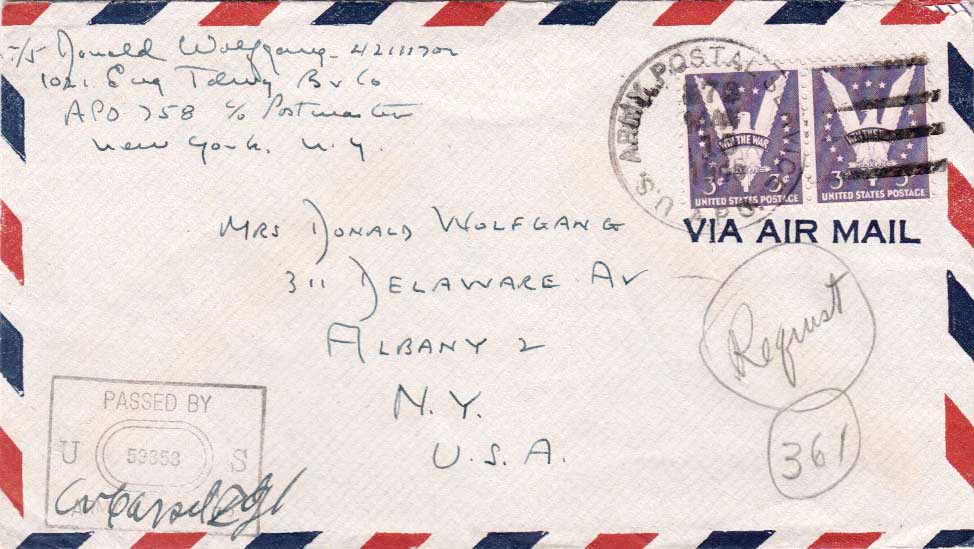 T/5 Donald Wolfgang 42111702
1021 Eng Tdwy Br Co
APO 758 c/o Postmaster
New York, N.Y.
ARMY POSTAL SERVICE
U.S. A.P.O.
WIN THE WAR
3¢ 3¢
UNITED STATES POSTAGE
WIN THE WAR
3 3¢
UNITED STATES POSTAGE
VIA AIR MAIL
MRS DONALD WOLFGANG
311 DELAWARE AV
ALBANY 2
N.Y.
U.S.A.
Request
361
PASSED BY
U 53353 S